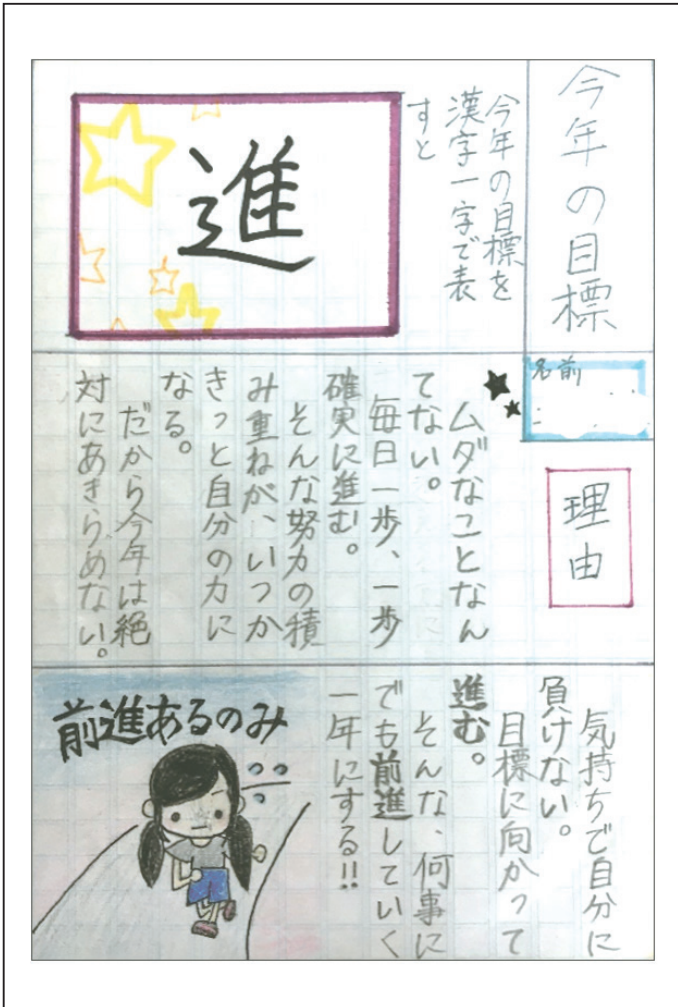 今年の目標
今年の目標を
漢字一字で表
すと
進
名前
理由
ムダなことなん
てない。
毎日一歩、一歩
確実に進む。
そんな努力の積
み重ねが、いつか
きっと自分の力に
なる。
だから今年は絶
対にあきらめない。
気持ちで自分に
負けない。
目標に向かって
進む。
そんな、何事に
でも前進していく
一年にする!!
前進あるのみ